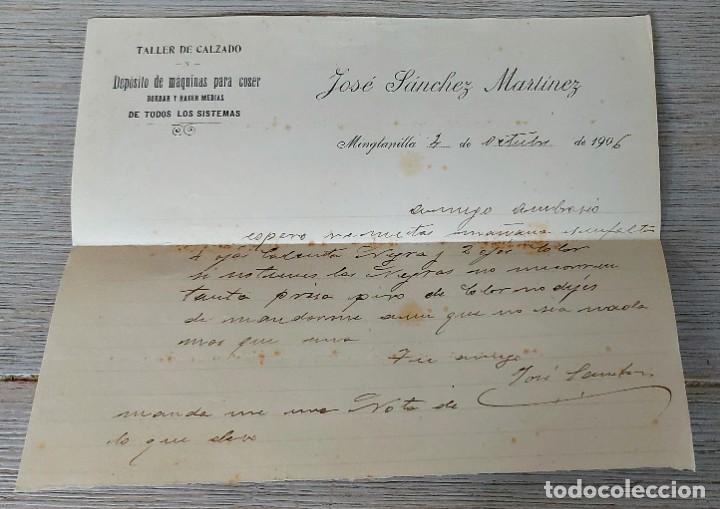 TALLER DE CALZADO
Depósito de máquinas para coser
BORDAR Y HACER MEDIAS
DE TODOS LOS SISTEMAS
José Sánchez Martínez
Minglanilla 4 de Octubre de 1906
amigo ambrosio
espero remetas mañana sin falta
4 ojas Negra y 2 ojas Color
si notienes las Negras no me corren
tanta prisa piro de Color no dejes
de mandarme aun que no sea nada
mas que una
Tu amigo
José Sanchez
manda me una Nota de
lo que devo
todocoleccion.net